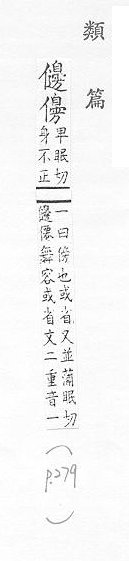 類篇
㒙
卑眠切
身不正
一曰傍也或省又並蒲眠切
㒙僊舞容或省文二重音一
(p.279)